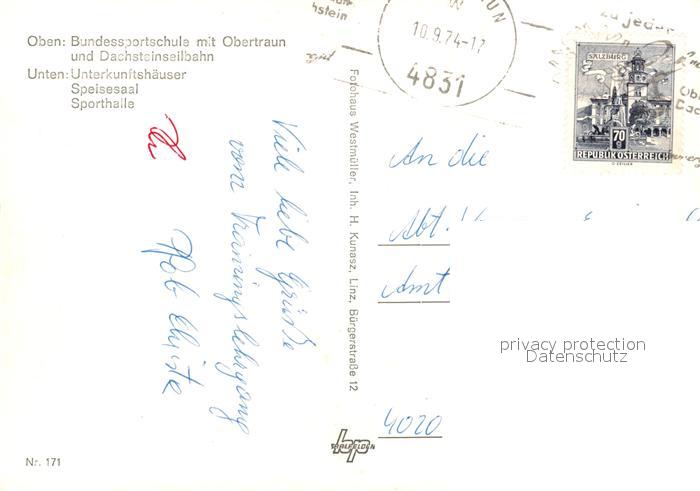 Oben: Bundessportschule mit Obertraun
und Dachsteinseilbahn
Unten: Unterkunftshäuser
Speisesaal
Sporthalle
Viele liebe Grüße
vom Trainingslehrgang
Christa
Fotohaus Westmüller, Inh. H. Kunasz, Linz, Bürgerstraße 12
10.9.74-17
4831
zu jeder
SALZBURG
70
g
REPUBLIK ÖSTERREICH
An die
Abt.
Amt
privacy protection
Datenschutz
4020
Nr. 171